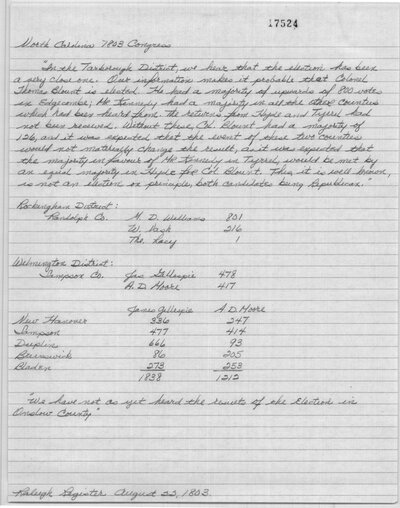 17524
North Carolina 1803 Congress
"In the Tarborough District, we hear that the election has been
a very close one. Our information makes it probable that Colonel
Thomas Blount is elected. He had a majority of upwards of 800 votes
in Edgecombe; Mr Kennedy had a majority in all the other Counties
which had been heard from. The returns from Hyde and Tyrrel had
not been received. Without these, Col. Blount had a majority of
126, and it was expected that the event of these two counties
would not materially change the result, as it was expected that
the majority in favour of Mr Kennedy in Tyrrel, would be met by
an equal majority in Hyde for Col Blount. This, it is well known,
is not an election on principle, both candidates being Republican."
Rockingham District:
Randolph Co. M. D. Williams 801
W. Dash 216
Tho. Lacy 1
Wilmington District:
Sampson Co. Jas Gillespie 478
A. D. Moore 417
James Gillespie A D. Moore
New Hanover 336 247
Sampson 477 414
Duplin 666 93
Brunswick 86 205
Bladen 273 253
1838 1212
"We have not as yet heard the results of the Election in
Onslow County"
Raleigh Register August 22, 1803